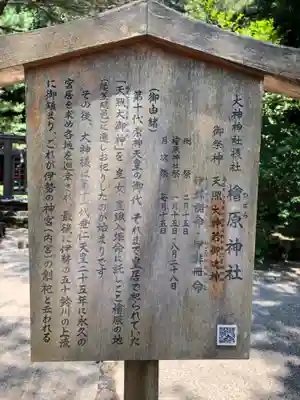 大神神社摂社 檜原神社
ひばら
御祭神 天照大神若御魂神
伊弉諾命 伊弉冊命
例祭 
檜原神社祭 八月二十八日
月次祭 毎月十五日
(御由緒)
第十代崇神天皇の御代、それまで皇居で祀られていた
「天照大御神」を皇女豊鍬入姫命に託しここ檜原の地
に遷しお祀りしたのが始まりです。
その後、大神様は第十一代垂仁天皇二十五年に永久の
宮居を求め各地を巡幸され、最後に伊勢の五十鈴川の上流
に御鎮まり、これが伊勢の神宮(内宮)の創祀と云われる